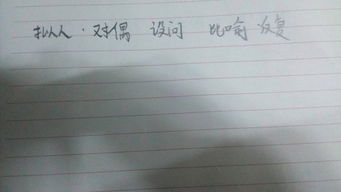 拟人·对偶 设问 比喻 反复